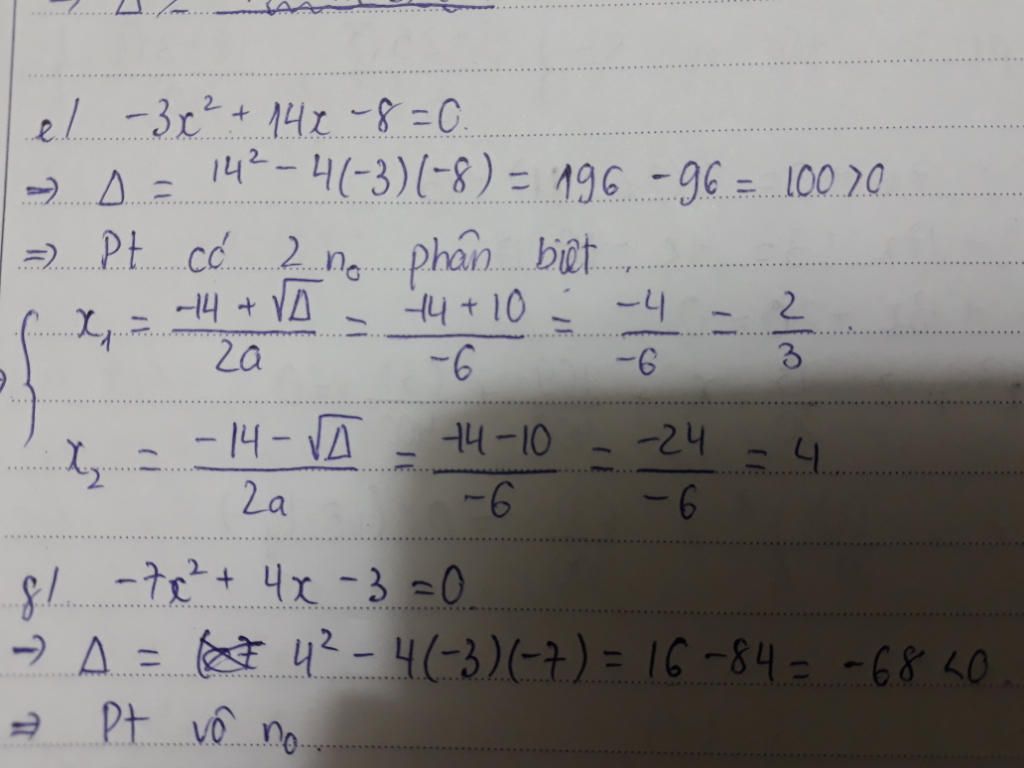 e/ -3x² + 14x - 8 = 0.
=> Δ = 14² - 4(-3)(-8) = 196 - 96 = 100 > 0
=> Pt có 2 n₀ phân biệt.
x₁ = (-14 + √Δ)/2a = (-14 + 10)/-6 = -4/-6 = 2/3.
x₂ = (-14 - √Δ)/2a = (-14 - 10)/-6 = -24/-6 = 4
g/. -7x² + 4x - 3 = 0
-> Δ = 4² - 4(-3)(-7) = 16 - 84 = -68 < 0.
=> Pt vô n₀.